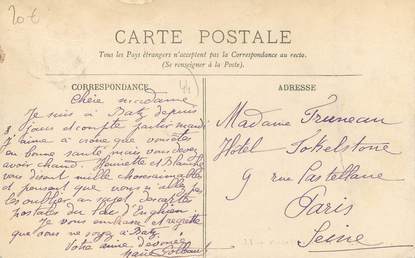 20 €
CARTE POSTALE
Tous les Pays étrangers n'acceptent pas la Correspondance au recto.
(Se renseigner à la Poste).
CORRESPONDANCE
ADRESSE
44
Chère madame
Je suis à Batz depuis
8 jours et compte partir mardi
J'aime à croire que vous êtes
en bonne santé mais vous devez
avoir chaud. Henriette et Blanche
vous disent mille choses aimables
et pensent que vous n'allez pas
les oublier au sujet des cartes
postales du lac d'Enghien
Je vous embrasse et regrette
que vous ne soyez à Batz.
Votre amie dévouée
Marie
Madame Truneau
Hotel Tokelstone
9 rue Castellane
Paris
Seine